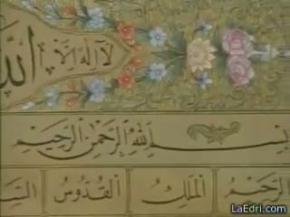 لا إله إلا الله
بسم الله الرحمن الرحيم
الرحيم الملك القدوس
LaEdri.com